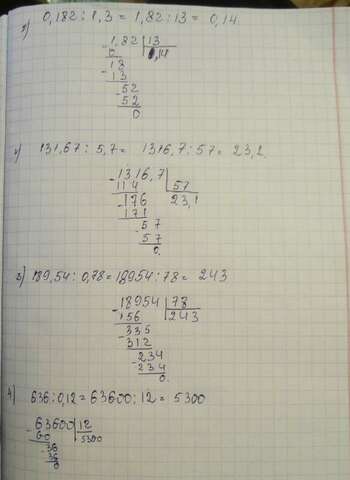 0,182 : 1,3 = 1,82 : 13 = 0,14.
1,82 | 13
0 0,14
13
13
52
52
0
131,67 : 5,7 = 1316,7 : 57 = 23,1.
1316,7 | 57
114 23,1
176
171
57
57
0.
3) 189,54 : 0,78 = 18954 : 78 = 243
18954 | 78
156 243
335
312
234
234
0.
4) 636 : 0,12 = 63600 : 12 = 5300
63600 | 12
60 5300
36
36
0